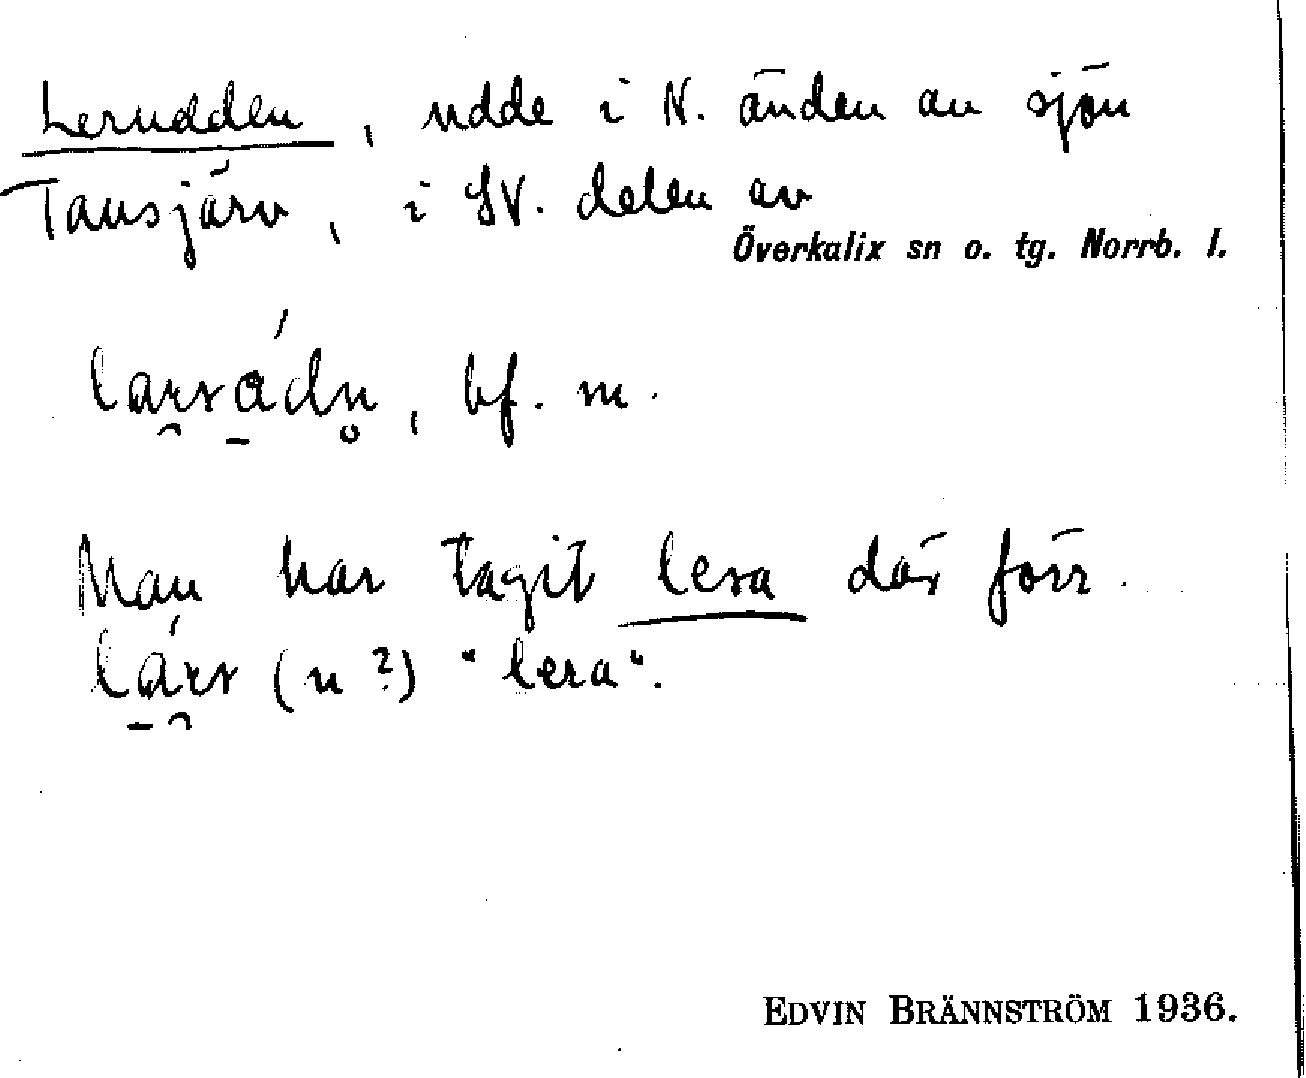 Lerudden, udde i N. änden av sjön
Tansjärv, i SV. delen av
Överkalix sn o. tg. Norrb. l.
bf. m.
Man har tagit lera där förr.
(n?) "lera".
EDVIN BRÄNNSTRÖM 1936.